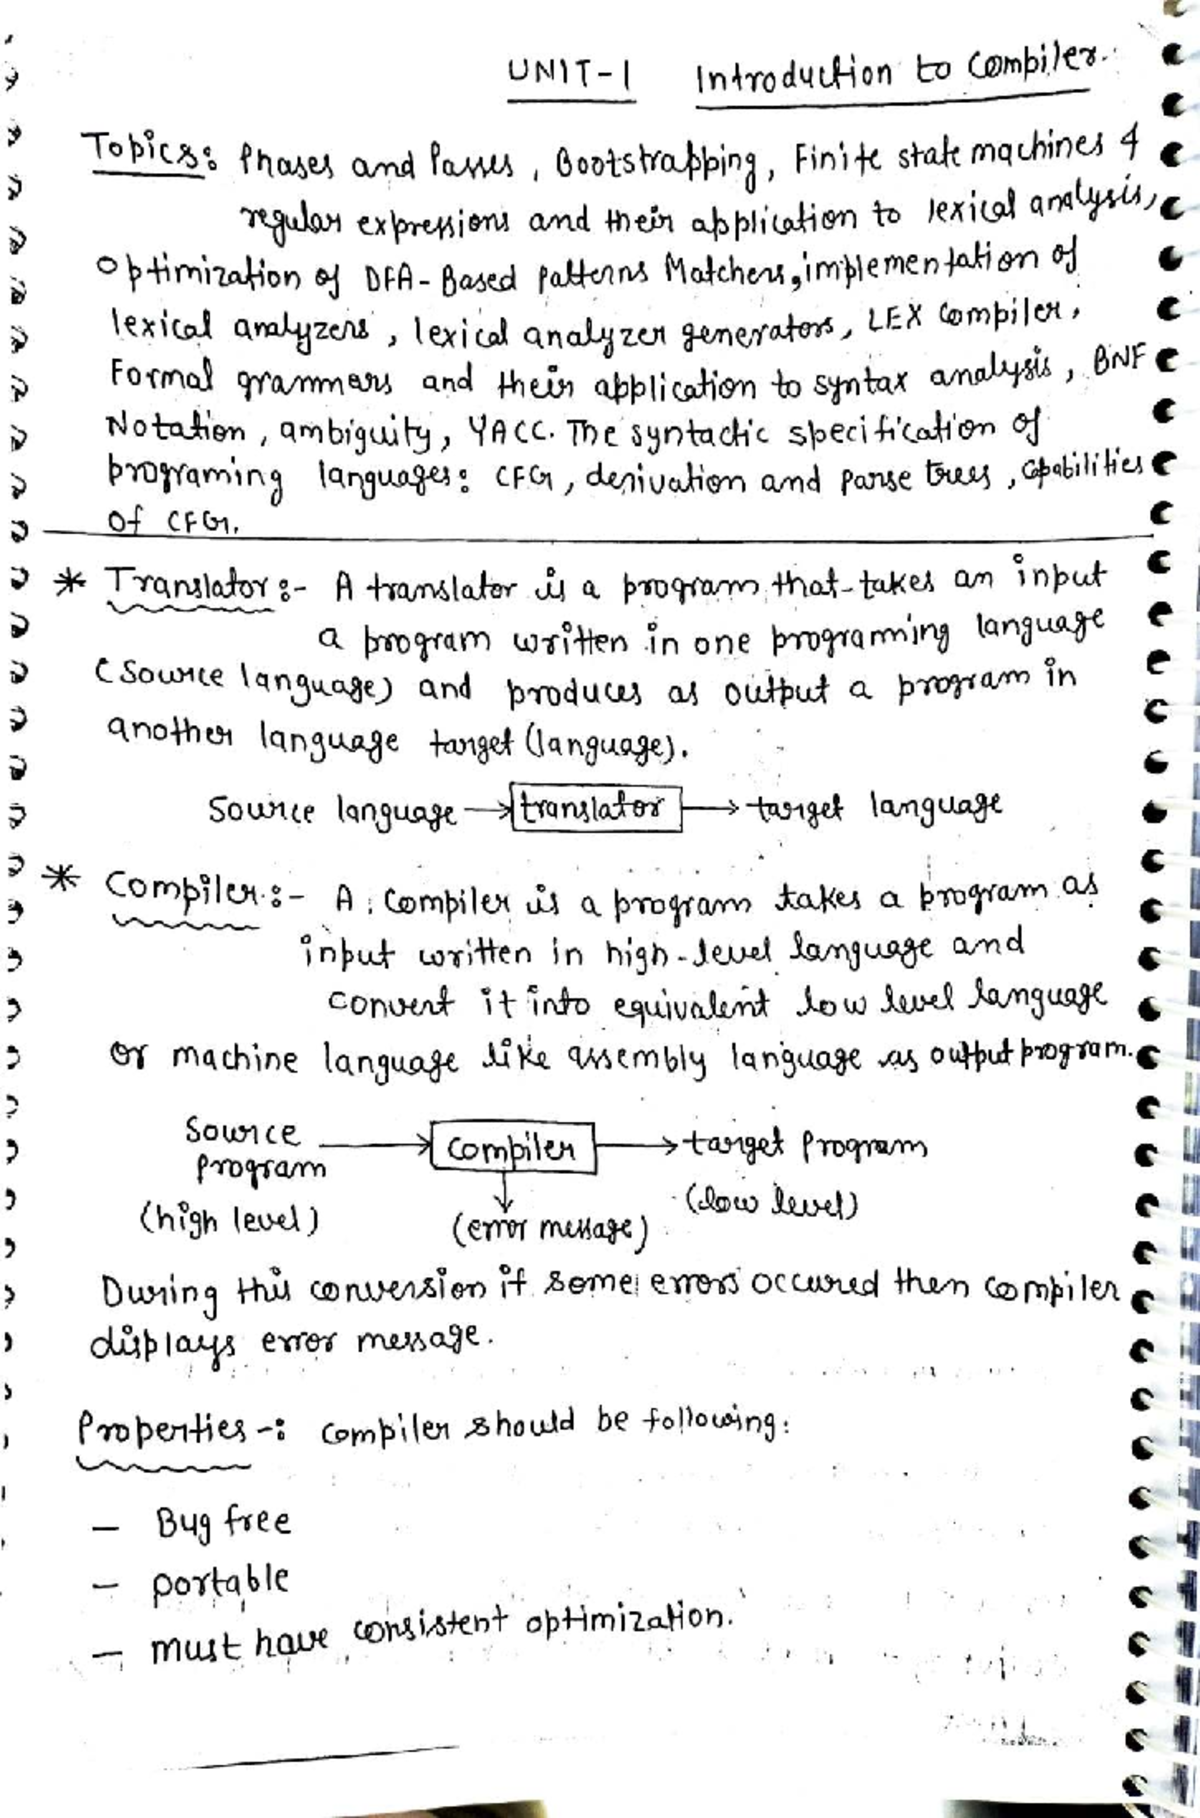 UNIT-1 Introduction to Compiler.
Topics: Phases and Passes, Bootstrapping, Finite state machines &
regular expressions and their application to lexical analysis,
Optimization of DFA-Based Patterns Matchers, implementation of
lexical analyzers, lexical analyzer generators, LEX Compiler,
Formal grammers and their application to syntax analysis, BNF
Notation, ambiguity, YACC. The syntactic specification of
programing languages: CFG, derivation and Parse trees, Capabilities
of CFG.
* Translator:- A translator is a program that takes an input
a program written in one programing language
(Source language) and produces as output a program in
another language target (language).
Source language → translator → target language
* Compiler:- A Compiler is a program takes a program as
input written in high-level language and
convert it into equivalent low level language
or machine language like assembly language as output program.
Source
Program
→ Compiler → target Program
(high level)
(error message)
(low level)
During this conversion if some errors occured then compiler
displays error message.
Properties-: Compiler should be following:
- Bug free
- portable
- must have consistent optimization.